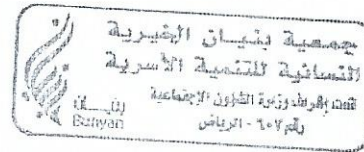 جمعية بنيان الخيرية
النسائية للتنمية الأسرية
تحت إشراف وزارة الشؤون الإجتماعية
رقم ٦٠٧ - الرياض
بنيـــان
Bunyan